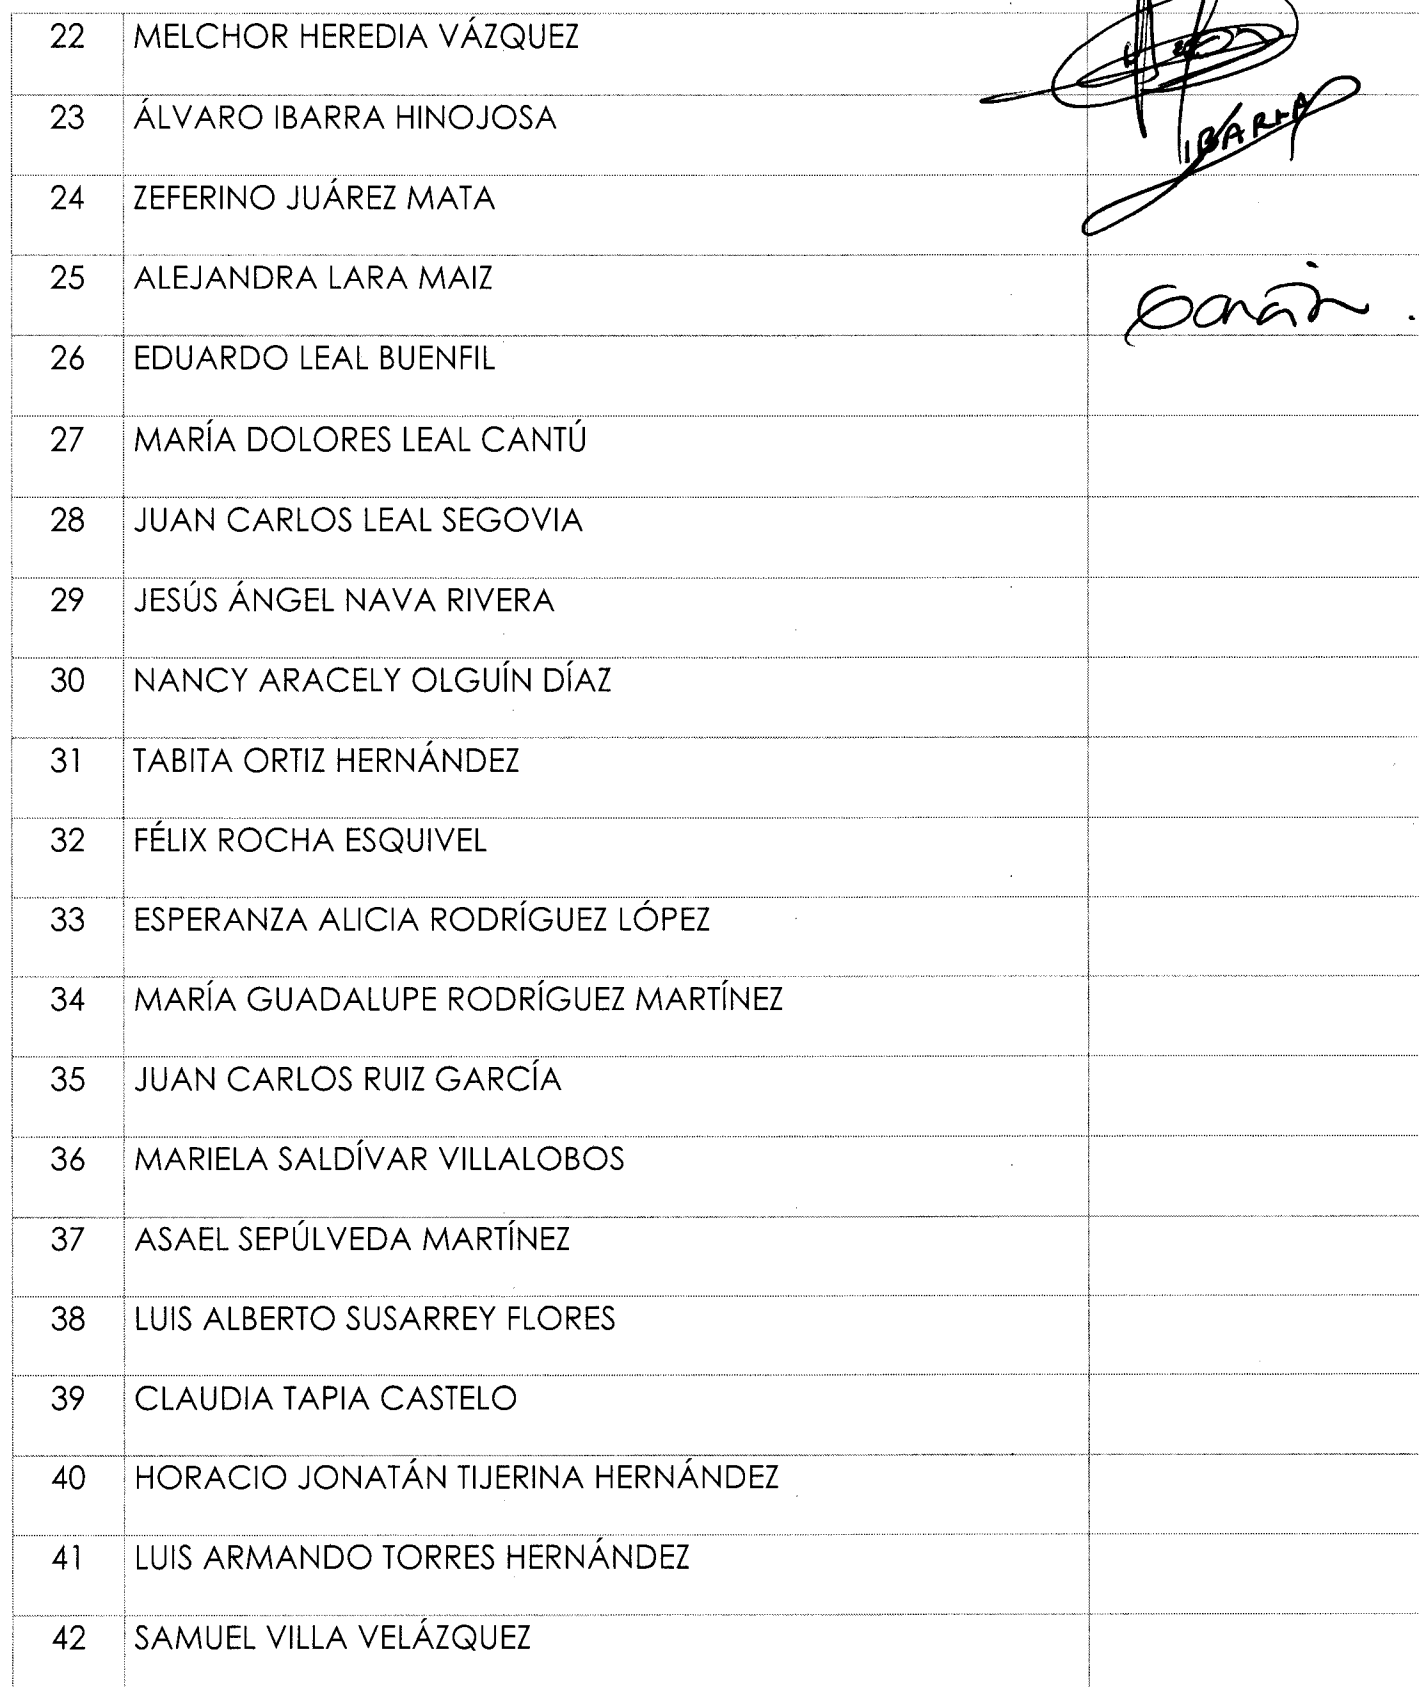 22 MELCHOR HEREDIA VÁZQUEZ
23 ÁLVARO IBARRA HINOJOSA
IBARRA
24 ZEFERINO JUÁREZ MATA
25 ALEJANDRA LARA MAIZ
26 EDUARDO LEAL BUENFIL
27 MARÍA DOLORES LEAL CANTÚ
28 JUAN CARLOS LEAL SEGOVIA
29 JESÚS ÁNGEL NAVA RIVERA
30 NANCY ARACELY OLGUÍN DÍAZ
31 TABITA ORTIZ HERNÁNDEZ
32 FÉLIX ROCHA ESQUIVEL
33 ESPERANZA ALICIA RODRÍGUEZ LÓPEZ
34 MARÍA GUADALUPE RODRÍGUEZ MARTÍNEZ
35 JUAN CARLOS RUIZ GARCÍA
36 MARIELA SALDÍVAR VILLALOBOS
37 ASAEL SEPÚLVEDA MARTÍNEZ
38 LUIS ALBERTO SUSARREY FLORES
39 CLAUDIA TAPIA CASTELO
40 HORACIO JONATÁN TIJERINA HERNÁNDEZ
41 LUIS ARMANDO TORRES HERNÁNDEZ
42 SAMUEL VILLA VELÁZQUEZ